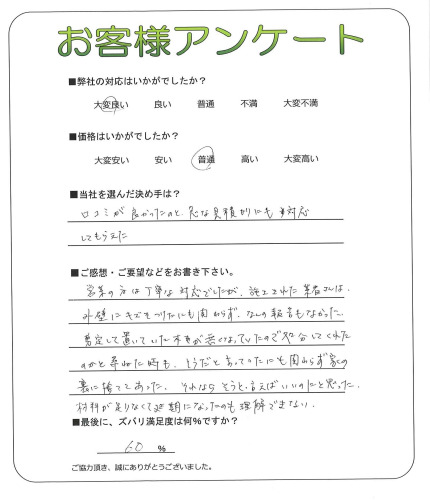 お客様アンケート
■弊社の対応はいかがでしたか？
大変良い 良い 普通 不満 大変不満
■価格はいかがでしたか？
大変安い 安い 普通 高い 大変高い
■当社を選んだ決め手は？
口コミが良かったのと、急な見積りにも対応
してもらえた
■ご感想・ご要望などをお書き下さい。
営業の方は丁寧な対応でしたが、施工された業者さんは、
外壁にキズをつけたにも関わらず、なんの報告もなかった。
剪定して置いていた木が無くなっていたので処分してくれた
のかと尋ねた時も、そうだと言っていたにも関わらず家の
裏に捨ててあった。それならそうと言えばいいのにと思った。
材料が足りなくて延期になったのも理解できない。
■最後に、ズバリ満足度は何%ですか？
60 %
ご協力頂き、誠にありがとうございました。